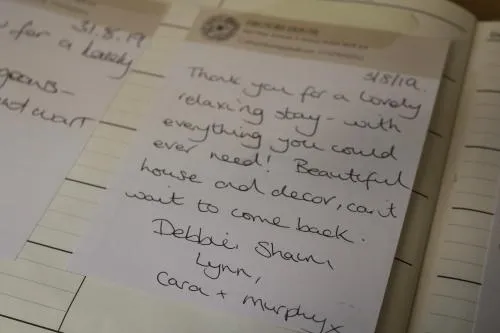 31.8.19
for a lovely
not wait
3/8/19.
Thank you for a lovely
relaxing stay - with
everything you could
ever need! Beautiful
house and decor, can't
wait to come back.
Debbie, Shaun,
Lynn,
Cara + Murphy x